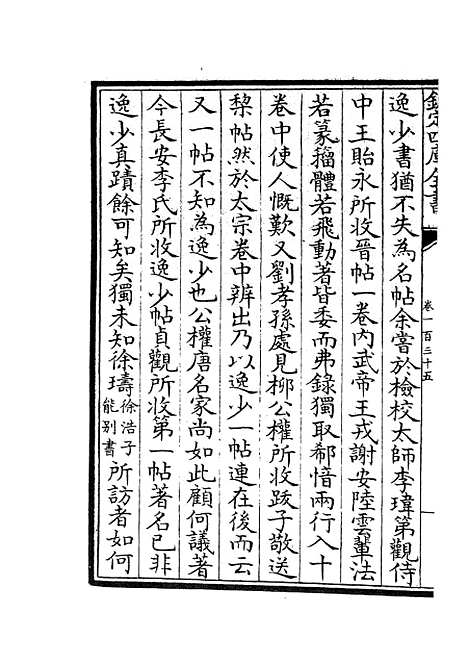 欽定四庫全書
卷一百三十五
逸少書猶不失為名帖余嘗於檢校太師李瑋第觀侍
中王貽永所收晉帖一卷內武帝王戎謝安陸雲輩法
若篆籀體若飛動著皆委而弗錄獨取郗愔兩行入十
卷中使人慨歎又劉孝孫處見柳公權所收跋子敬送
棃帖然於太宗卷中辨出乃以逸少一帖連在後而云
又一帖不知為逸少也公權唐名家尚如此顧何議著
今長安李氏所收逸少帖貞觀所收第一帖著名已非
逸少真蹟餘可知矣獨未知徐璹徐浩子能别書所訪者如何